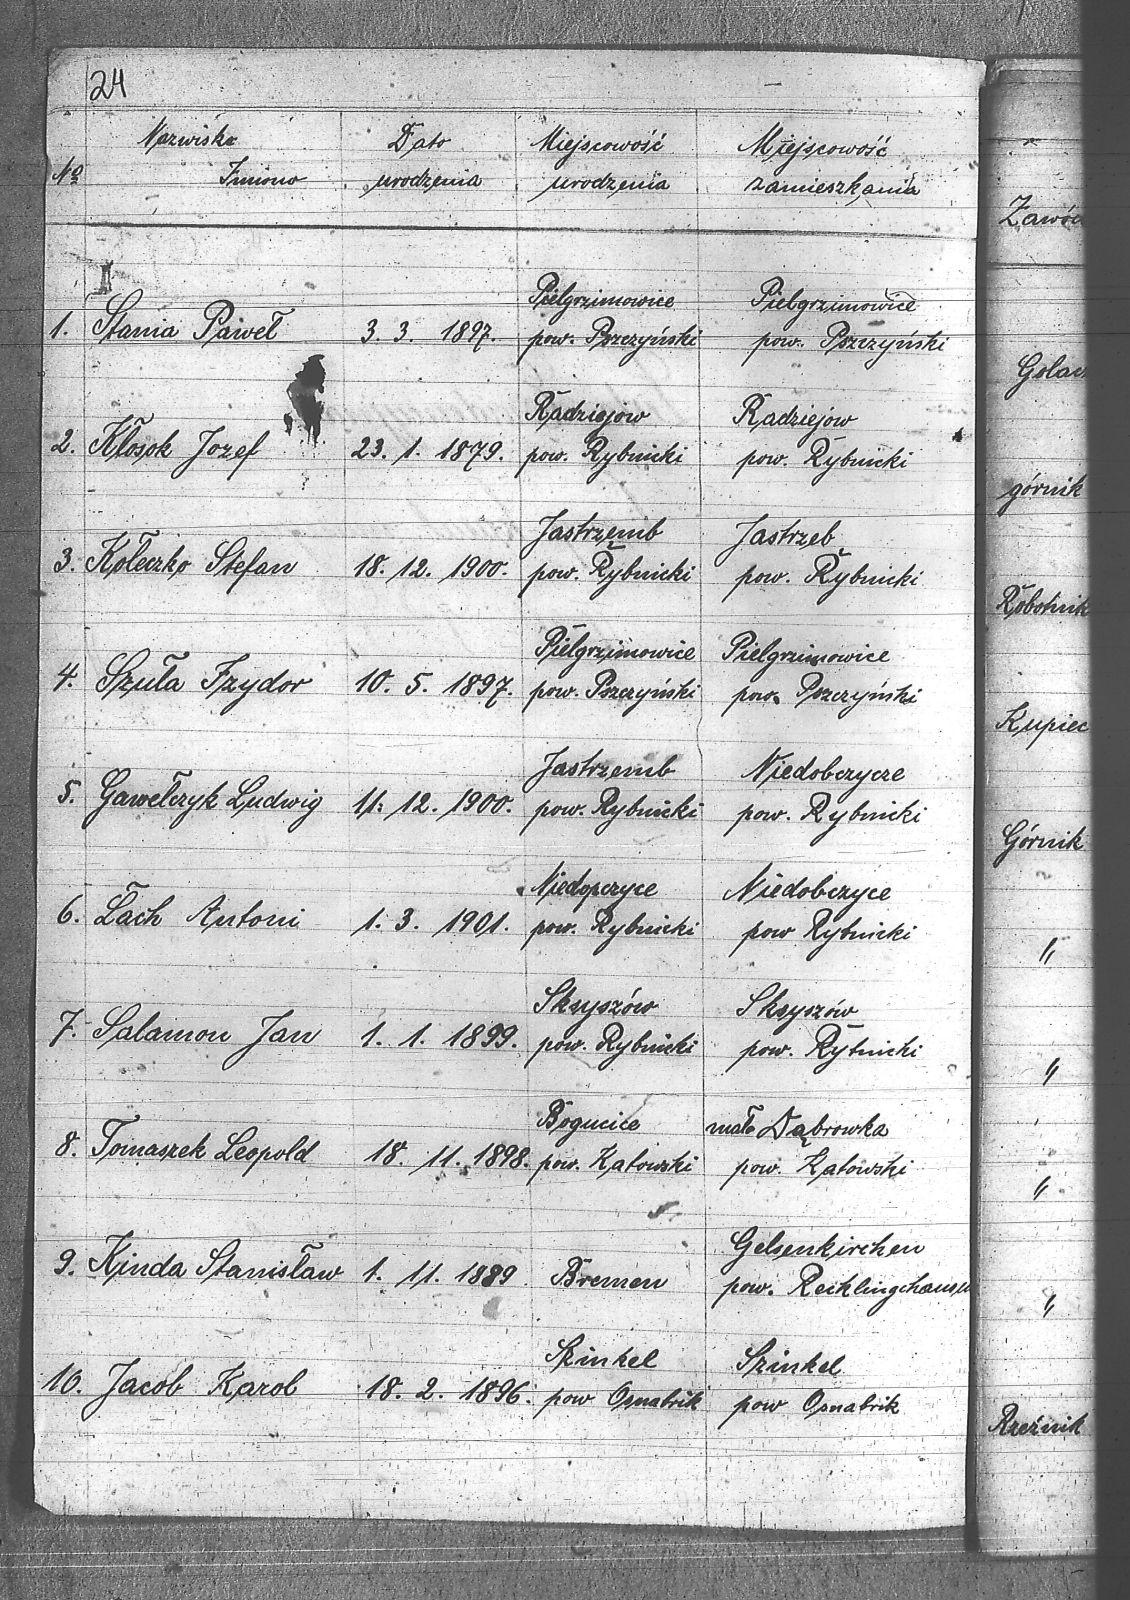 24
Nazwisko Data Miejscowość Miejscowość
No Imiono urodzenia urodzenia zamieszkania
Zawód
I
Pielgrzimowice Pielgrzimowice
1. Stania Paweł 3. 3. 1897. pow. Pszczyński pow. Pszczyński
Golac
Radziejow Radziejow
2. Kłosok Jozef 23. 1. 1879. pow. Rybnicki pow. Rybnicki
górnik
Jastrzemb Jastrzeb
3. Kołeczko Stefan 18. 12. 1900. pow. Rybnicki pow. Rybnicki
Robotnik
Pielgrzimowice Pielgrzimowice
4. Szuła Izydor 10. 5. 1897. pow. Pszczyński pow. Pszczyński
Kupiec
Jastrzemb Niedobczycze
5. Gawełczyk Ludwig 11. 12. 1900. pow. Rybnicki pow. Rybnicki
Górnik
Niedopczyce Niedobczyce
6. Łach Antoni 1. 3. 1901. pow. Rybnicki pow Rybnicki
"
Skszyszów Skszyszów
7. Salamon Jan 1. 1. 1899. pow. Rybnicki pow. Rybnicki
"
Bogucice mało Dąbrowka
8. Tomaszek Leopold 18. 11. 1898. pow. Katowski pow. Katowski
"
Gelsenkirchen
9. Kinda Stanisław 1. 11. 1889 Bremen pow. Recklingchausen
"
Szinkel Szinkel
10. Jacob Karol 18. 2. 1896. pow Osnabrik pow Osnabrik
Rzeźnik